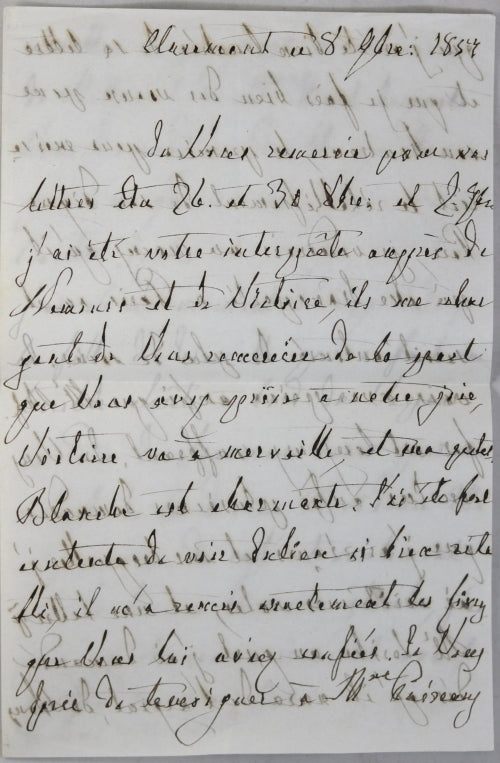 Claremont ce 8 9bre: 1857
Je Vous remercie pour vos
lettres du 26. et 30 8bre: et 2 9bre
j'ai été votre interprète auprès de
Nemours et de Victoire, ils me char
gent de Vous remercier de la part
que Vous avez prise a notre joie,
Victoire va à merveille, et ma petite
Blanche est charmante. J'ai été fort
contente de voir si bien
il m'a remis exactement les
que Vous lui aviez confiés. Je Vous
prie de temoigner à Mme